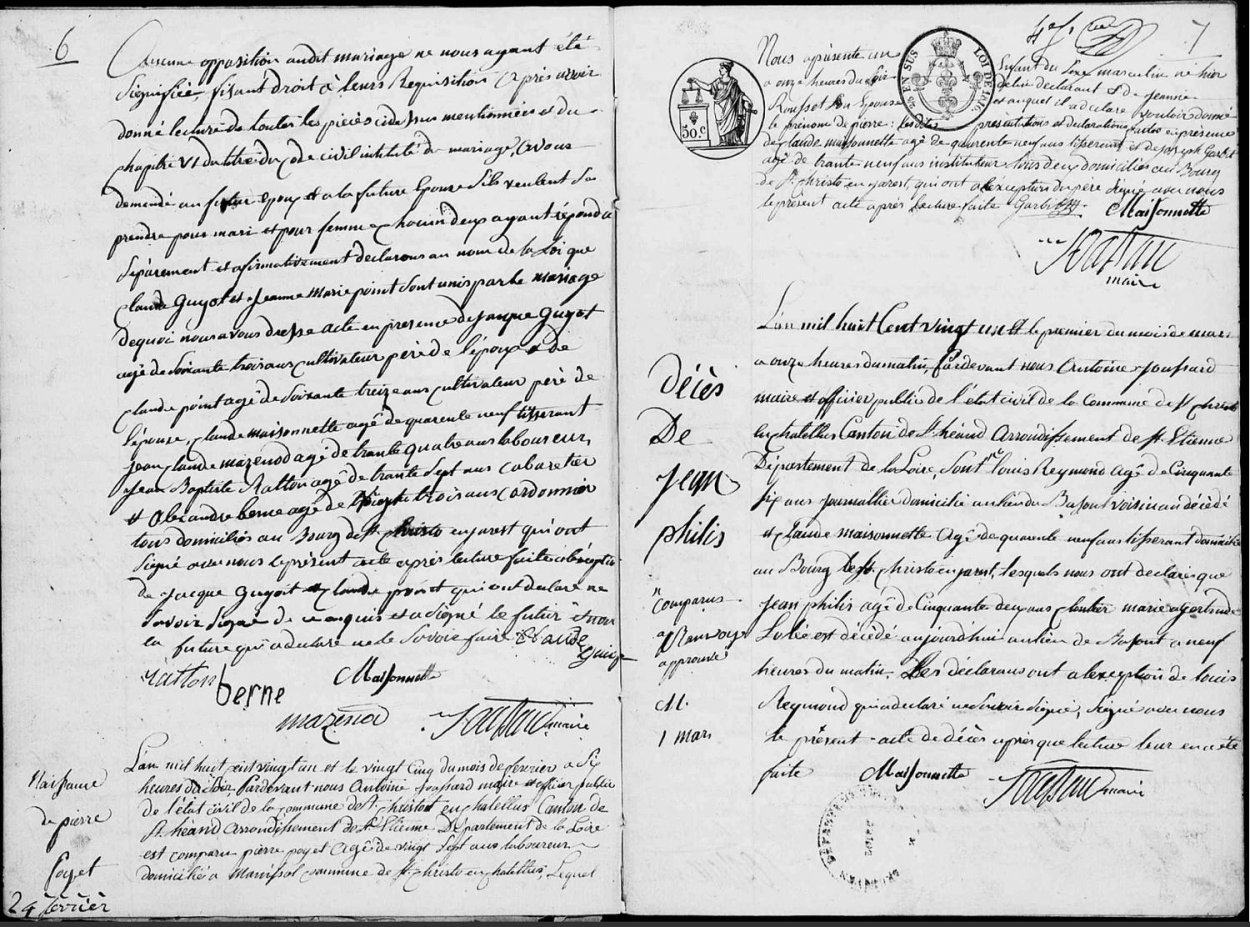 6
Aucune opposition audit mariage ne nous ayant été
signifiée, fesant droit à leurs Requisition après avoir
donné lecture de toutes les pièces ci dessus mentionnées et du
chapitre VI du titre du Code civil intitulé du mariage, avons
demandé au futur époux et a la future Epouse s'ils veulent se
prendre pour mari et pour femme chacun deux ayant répondu
séparement et afirmativement declarons au nom de la Loi que
Claude Guyot et Jeanne Marie point sont unis par le mariage
De quoi nous avons dressé acte en presence de Jacque Guyot
agé de Soixante trois ans cultivateur père de l'époux & De
Claude point agé de Soixante treize ans cultivateur père de
l'épouse, Claude maisonnette agé de quarente neuf tisserant
jean Claude mazenod agé de trante quatre ans laboureur,
Jean Baptiste Ratton agé de trante Sept ans Cabaretier
et Alexandre berne agé de trois ans Cordonnier
tous domiciliés au Bourg de St. Christo en jarest qui ont
signé avec nous le présent acte après lecture faite a l'exception
de Jacque Guyot et Claude point qui ont declaré ne
savoir signé de ce enquis et a signé le futur et non
la future qui a declaré ne le Savoir faire Claude
Guiot
ratton berne Maisonnette
mazenod Joassard maire
Naissance
de pierre
Poyet
24 fevrier
L'an mil huit cent vingt un et le vingt Cinq du mois de fevrier a Six
heures du Soir Pardevant nous Antoine Joassard maire officier public
de l'état civil de la commune de St. Christo en chatellus Canton de
St. héand Arrondissement de St. Etienne Département de la Loire
est comparu pierre poyet agé de vingt Sept ans laboureur
domicilié a Manissol commune de St. Christo en chatellus, Lequel
7
EN SUS
LOI DE 1816
50.c
Nous a présenté un Enfant du Sexe masculin né hier
a onze heures du Soir de lui declarant & de Jeannie
Rousset son Epouse et auquel il a declaré vouloir donné
le prénom de pierre: les dites presentations et declaration faites en présence
de Claude maisonnette agé de quarente neuf ans tisserent et de joseph
agé de trante neuf ans instituteur tous deux domiciliés au Bourg
de St. Christo en jarest, qui ont a l'exception du père signé avec nous
le présent acte après lecture faite Maisonnette
Joassard
maire
Décès
De
jean
philis
comparus
approuvé
1 mars
L'an mil huit Cent vingt un et le premier du mois de mars
a onze heures du matin, Pardevant nous Antoine Joassard
maire et officier public de l'état civil de la Commune de St. Christo
en chatellus Canton de St. héand Arrondissement de St. Etienne
Département de la Loire, Sont louis Reymond agé de Cinquante
Six ans journallier domicilié au lieu du voisin au décédé
et Claude maisonnette agé de quarente neuf ans tisserant domicilié
au Bourg de St. Christo en jarest, lesquels nous ont declarés que
jean philis agé de Cinquante deux ans marié a
est décédé aujourd'hui au lieu de a neuf
heures du matin. Les déclarans ont a l'exception de louis
Reymond qui a declaré ne Savoir Signé, Signé avec nous
le présent acte de décès après que lecture leur en a été
faite Maisonnette Joassard maire